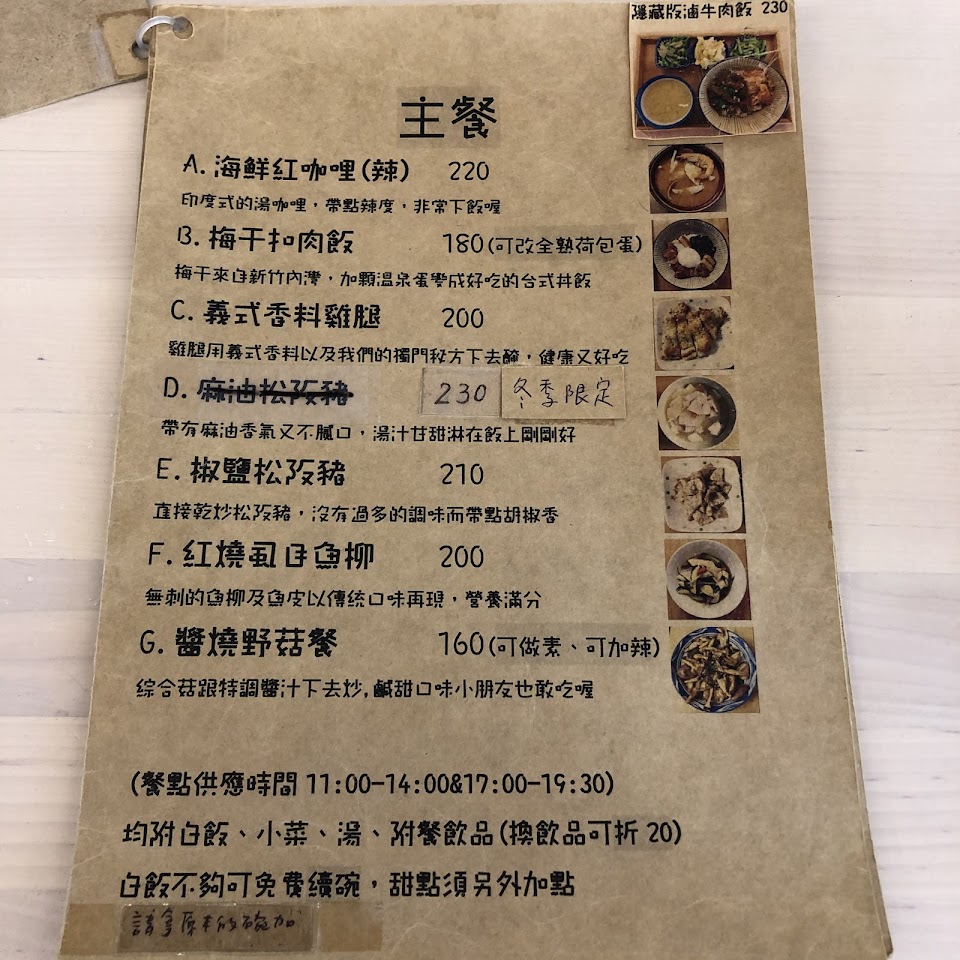 隱藏版滷牛肉飯 230
主餐
A. 海鮮紅咖哩(辣) 220
印度式的湯咖哩,帶點辣度,非常下飯喔
B. 梅干扣肉飯 180(可改全熟荷包蛋)
梅干來自新竹內灣,加顆溫泉蛋變成好吃的台式丼飯
C. 義式香料雞腿 200
雞腿用義式香料以及我們的獨門秘方下去醃,健康又好吃
D. 麻油松阪豬 230 冬季限定
帶有麻油香氣又不膩口,湯汁甘甜淋在飯上剛剛好
E. 椒鹽松阪豬 210
直接乾炒松阪豬,沒有過多的調味而帶點胡椒香
F. 紅燒虱目魚柳 200
無刺的魚柳及魚皮以傳統口味再現,營養滿分
G. 醬燒野菇餐 160(可做素、可加辣)
綜合菇跟特調醬汁下去炒,鹹甜口味小朋友也敢吃喔
(餐點供應時間 11:00-14:00&17:00-19:30)
均附白飯、小菜、湯、附餐飲品(換飲品可折 20)
白飯不夠可免費續碗,甜點須另外加點
請拿原本的碗加